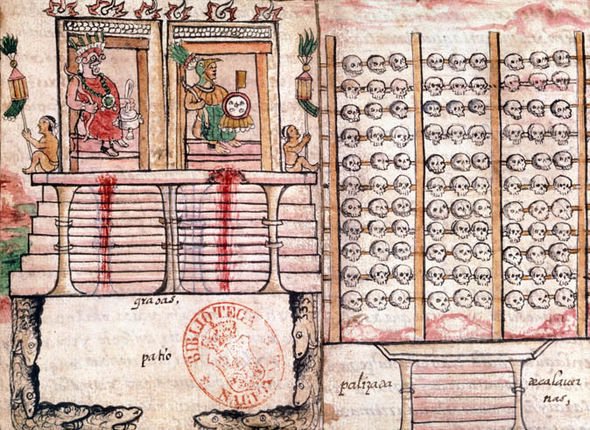 gradas,
patio
BIBLIOTECA
palizada de calauer
nas,